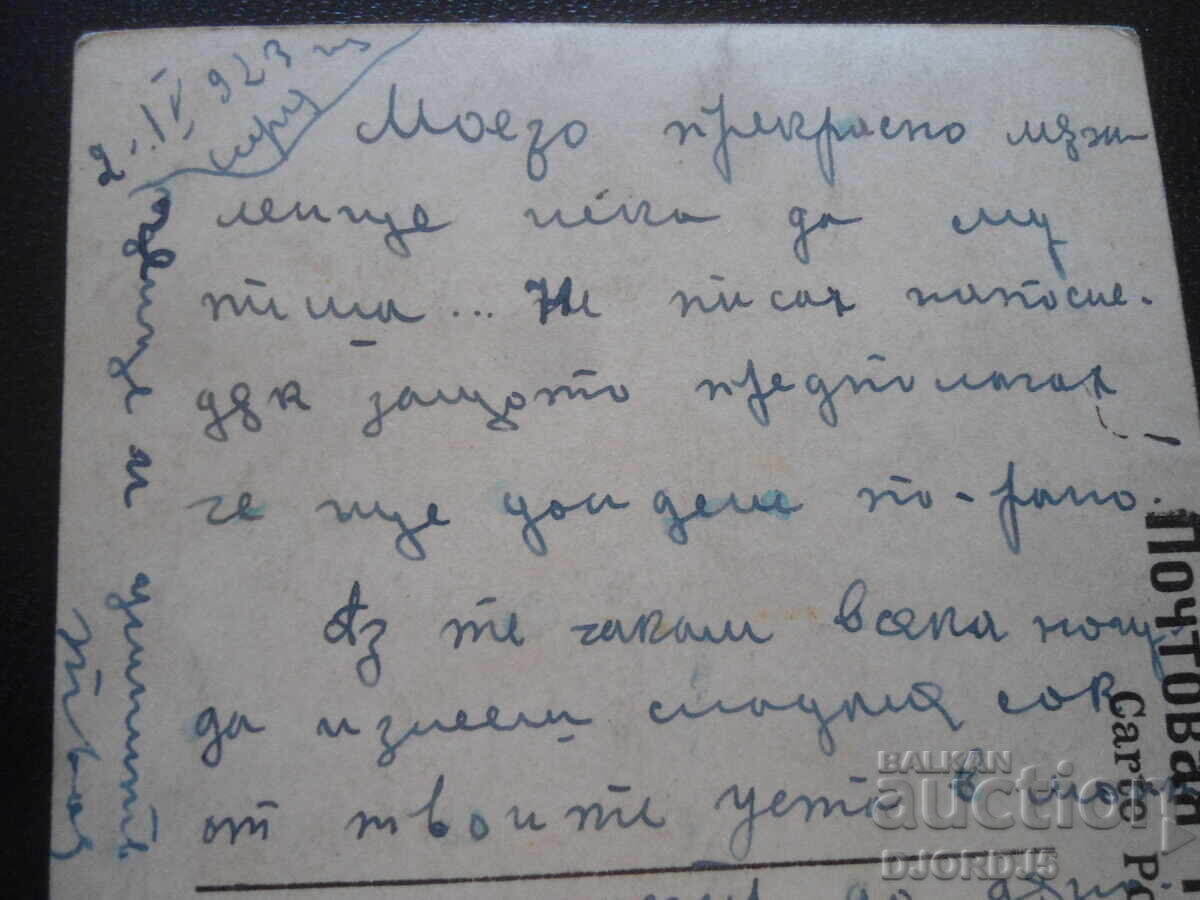 2.IV 923 из
Моего прекрасно мѫж-
ленце нека да му
пиша... Не писах напосле-
дѫк защото предполагах
че ще дойдеш по-рано.
Аз те чакам всяка нощ
да излееш сладкия сок
от твоите уста в мои
до
и
Твоя
Почтовая
Carte Po
BALKAN
auction
DJORDJ5